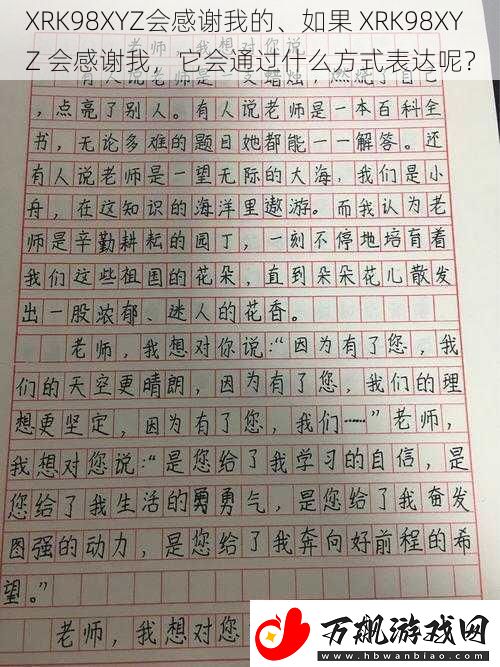 XRK98XYZ会感谢我的、如果 XRK98XY
Z 会感谢我，它会通过什么方式表达呢？
老师，我想对你说
有人说老师是一支蜡烛，燃烧了自己
，点亮了别人。有人说老师是一本百科全
书，无论多难的题目她都能一一解答。还
有人说老师是一望无际的大海，我们是小
舟，在这知识的海洋里遨游。而我认为老
师是辛勤耕耘的园丁，一刻不停地培育着
我们这些祖国的花朵，直到朵朵花儿散发
出一股浓郁、迷人的花香。
老师，我想对你说：“因为有了您，我
们的天空更晴朗，因为有了您，我们的理
想更坚定，因为有了您，我们……”老师，
我想对您说：“是您给了我学习的自信，是
您给了我生活的勇勇气，是您给了我奋发
图强的动力，是您给了我奔向好前程的希
望。”
老师，我想对您
万飙游戏网
www.hbwanbiao.com